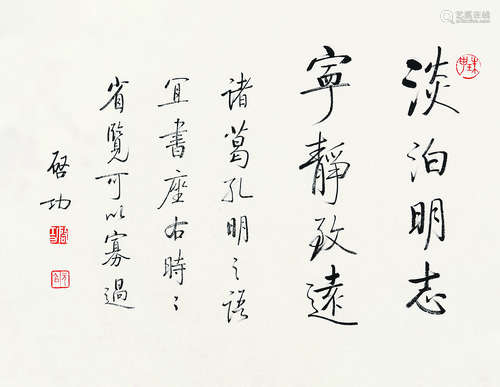 淡泊明志
寧靜致遠
諸葛孔明之語
宜書座右時〻
省覽可以寡過
啓功